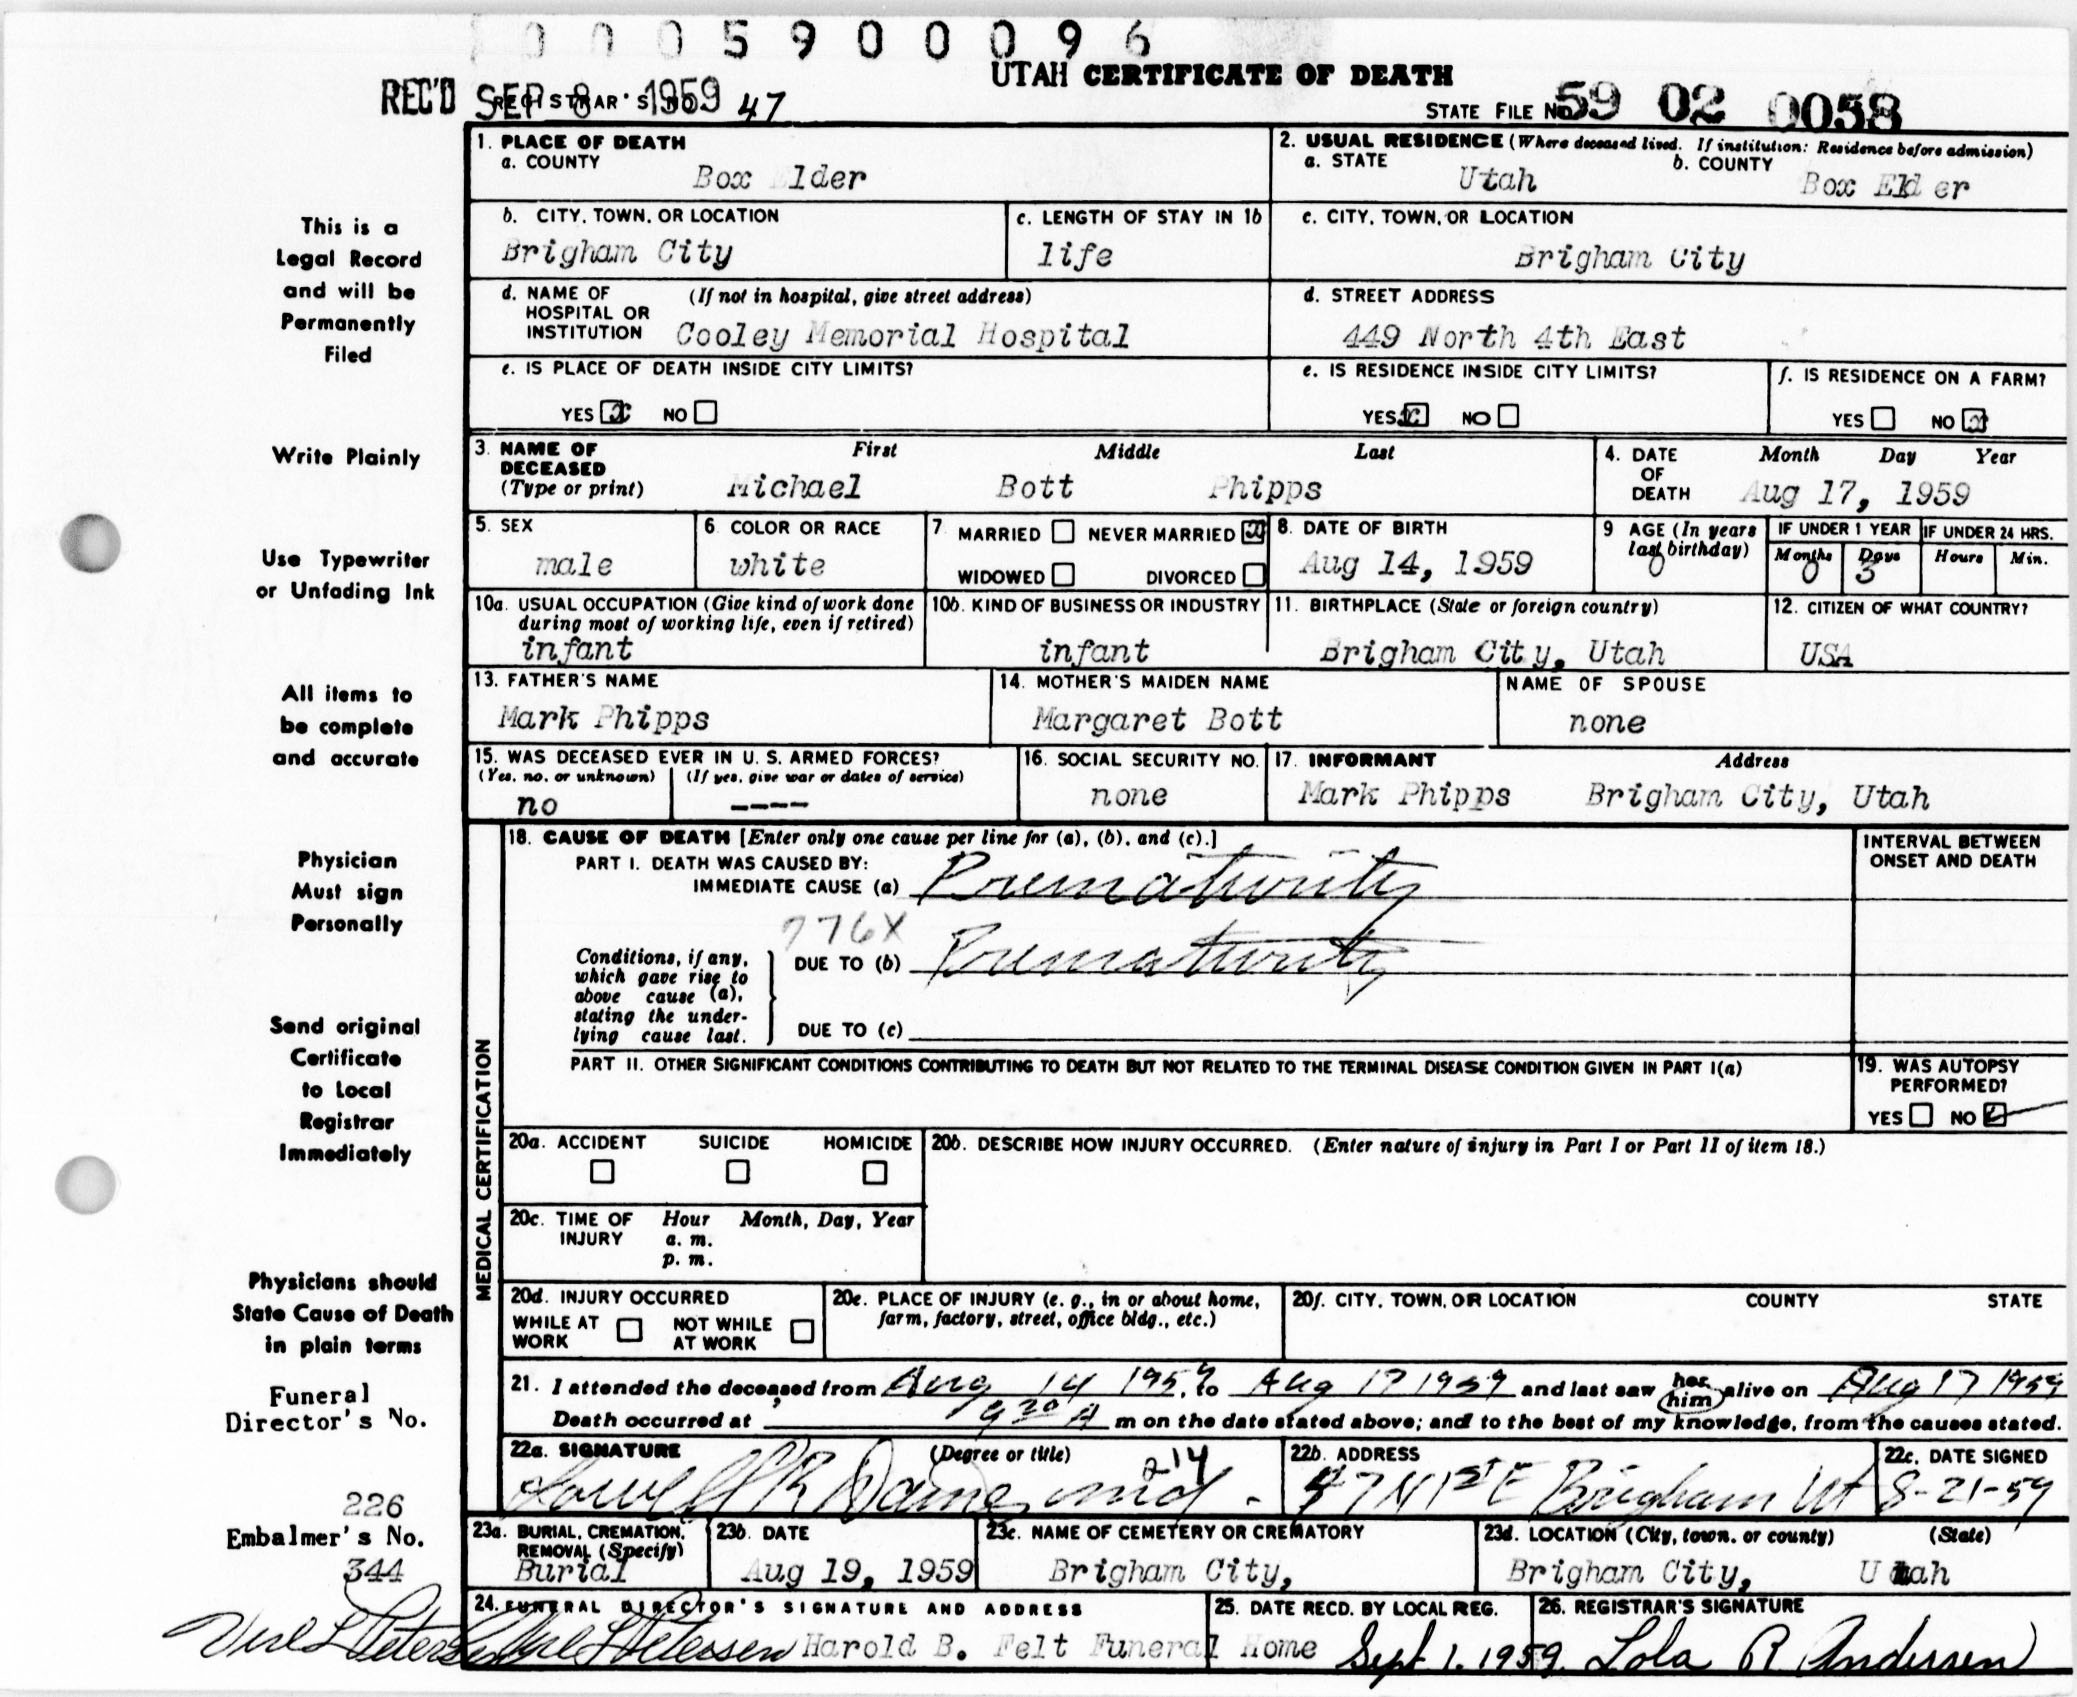 0 0 0 5 9 0 0 0 9 6
UTAH CERTIFICATE OF DEATH
REC'D SEP 8 1959 REGISTRAR'S NO. 47
STATE FILE No. 59 02 0058
This is a
Legal Record
and will be
Permanently
Filed
Write Plainly
Use Typewriter
or Unfading Ink
All items to
be complete
and accurate
Physician
Must sign
Personally
Send original
Certificate
to Local
Registrar
Immediately
Physicians should
State Cause of Death
in plain terms
Funeral
Director's No.
226
Embalmer's No.
344
1. PLACE OF DEATH
a. COUNTY
Box lder
2. USUAL RESIDENCE (Where deceased lived. If institution: Residence before admission)
a. STATE
Utah
b. COUNTY
Box Elder
b. CITY, TOWN, OR LOCATION
Brigham City
c. LENGTH OF STAY IN 1b
life
c. CITY, TOWN, OR LOCATION
Brigham City
d. NAME OF HOSPITAL OR INSTITUTION (If not in hospital, give street address)
Cooley Memorial Hospital
d. STREET ADDRESS
449 North 4th East
e. IS PLACE OF DEATH INSIDE CITY LIMITS?
YES x NO
e. IS RESIDENCE INSIDE CITY LIMITS?
YES x NO
f. IS RESIDENCE ON A FARM?
YES NO x
3. NAME OF DECEASED (Type or print)
First Middle Last
Michael Bott Phipps
4. DATE OF DEATH
Month Day Year
Aug 17, 1959
5. SEX
male
6. COLOR OR RACE
white
7. MARRIED NEVER MARRIED x
WIDOWED DIVORCED
8. DATE OF BIRTH
Aug 14, 1959
9 AGE (In years last birthday)
0
IF UNDER 1 YEAR
Months Days
0 3
IF UNDER 24 HRS.
Hours Min.
10a. USUAL OCCUPATION (Give kind of work done during most of working life, even if retired)
infant
10b. KIND OF BUSINESS OR INDUSTRY
infant
11. BIRTHPLACE (State or foreign country)
Brigham City, Utah
12. CITIZEN OF WHAT COUNTRY?
USA
13. FATHER'S NAME
Mark Phipps
14. MOTHER'S MAIDEN NAME
Margaret Bott
NAME OF SPOUSE
none
15. WAS DECEASED EVER IN U. S. ARMED FORCES?
(Yes, no, or unknown) (If yes, give war or dates of service)
no ----
16. SOCIAL SECURITY NO.
none
17. INFORMANT Address
Mark Phipps Brigham City, Utah
MEDICAL CERTIFICATION
18. CAUSE OF DEATH [Enter only one cause per line for (a), (b), and (c).]
PART I. DEATH WAS CAUSED BY:
IMMEDIATE CAUSE (a) Prematurity
776X
Conditions, if any, which gave rise to above cause (a), stating the underlying cause last.
DUE TO (b) Prematurity
DUE TO (c)
INTERVAL BETWEEN ONSET AND DEATH
PART II. OTHER SIGNIFICANT CONDITIONS CONTRIBUTING TO DEATH BUT NOT RELATED TO THE TERMINAL DISEASE CONDITION GIVEN IN PART I(a)
19. WAS AUTOPSY PERFORMED?
YES NO
20a. ACCIDENT SUICIDE HOMICIDE
20b. DESCRIBE HOW INJURY OCCURRED. (Enter nature of injury in Part I or Part II of item 18.)
20c. TIME OF INJURY Hour Month, Day, Year
a. m.
p. m.
20d. INJURY OCCURRED
WHILE AT WORK NOT WHILE AT WORK
20e. PLACE OF INJURY (e. g., in or about home, farm, factory, street, office bldg., etc.)
20f. CITY, TOWN, OR LOCATION COUNTY STATE
21. I attended the deceased from Aug 14 1959, to Aug 17 1959 and last saw her him alive on Aug 17 1959
Death occurred at 9 30 A m on the date stated above; and to the best of my knowledge, from the causes stated.
22a. SIGNATURE (Degree or title)
Lowell R Daines md. 214
22b. ADDRESS
47 N 1st E Brigham Ut
22c. DATE SIGNED
8-21-59
23a. BURIAL, CREMATION, REMOVAL (Specify)
Burial
23b. DATE
Aug 19, 1959
23c. NAME OF CEMETERY OR CREMATORY
Brigham City,
23d. LOCATION (City, town, or county) (State)
Brigham City, Utah
24. FUNERAL DIRECTOR'S SIGNATURE AND ADDRESS
Verl L Petersen Verl L Petersen Harold B. Felt Funeral Home
25. DATE RECD. BY LOCAL REG.
Sept 1. 1959.
26. REGISTRAR'S SIGNATURE
Lola R Andersen